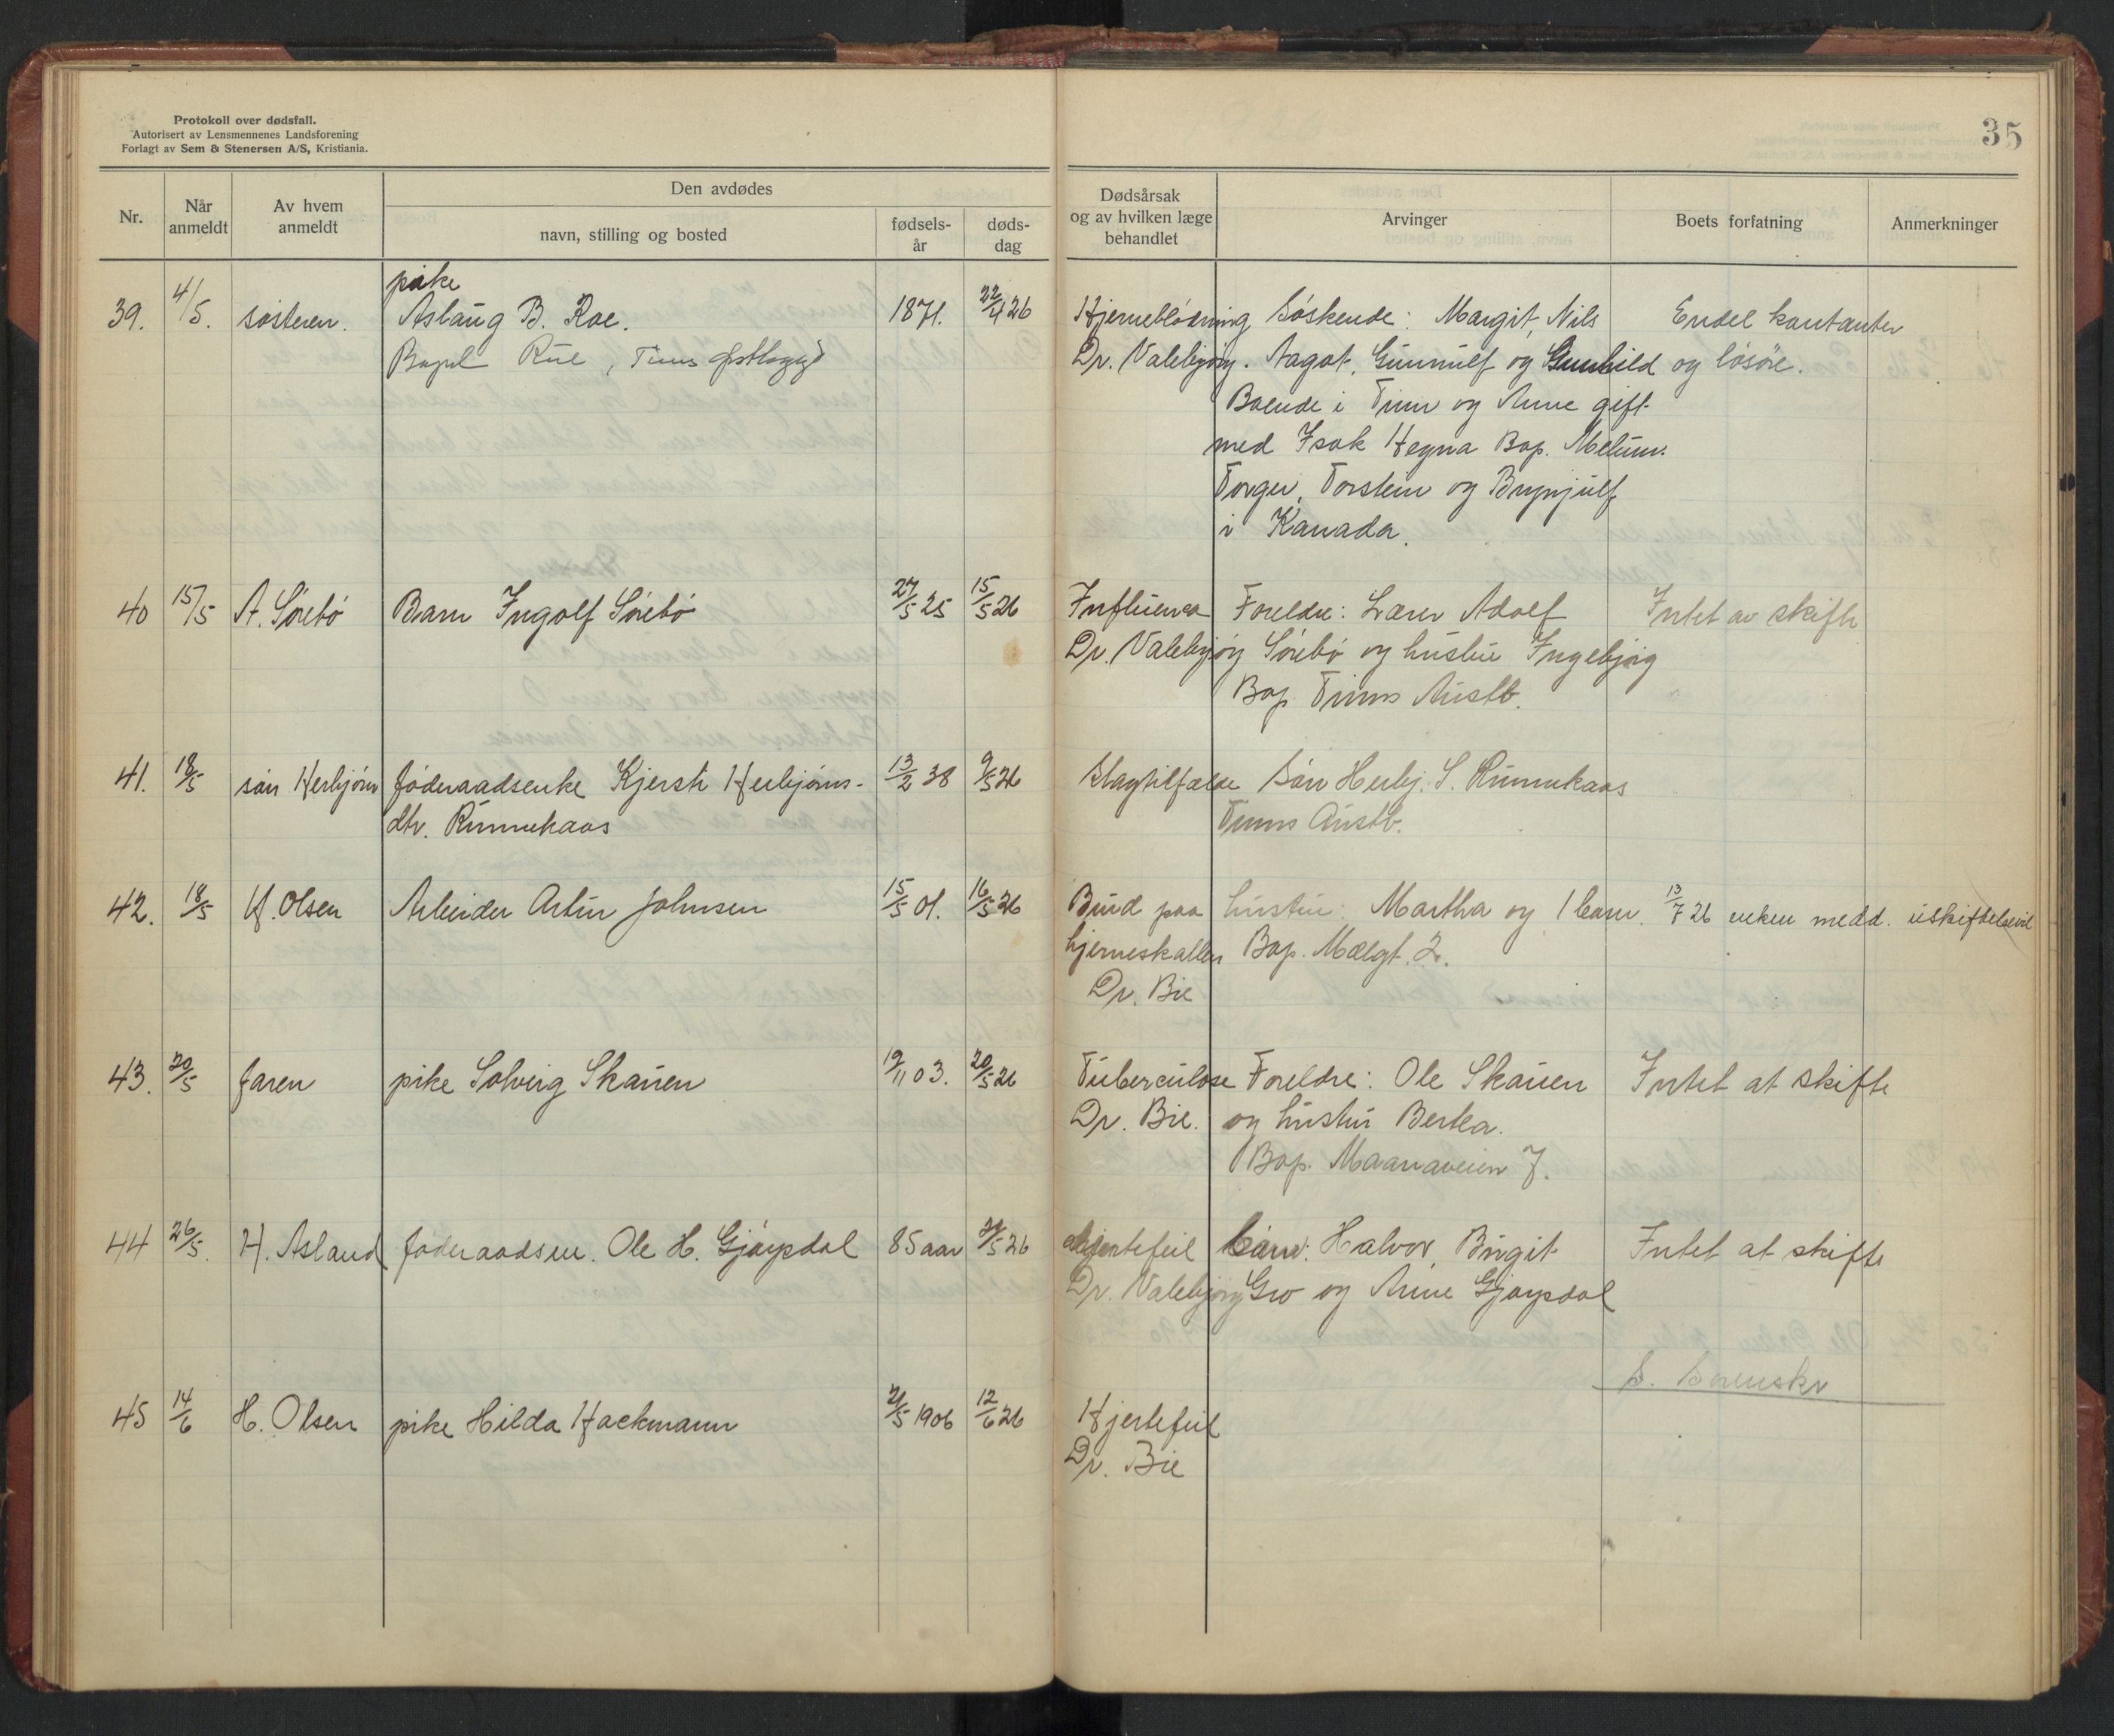 Protokoll over dødsfall.
Autorisert av Lensmennenes Landsforening
Forlagt av Sem & Stenersen A/S, Kristiania.
35
Nr.
Når anmeldt
Av hvem anmeldt
Den avdødes
navn, stilling og bosted
fødsels-år
døds-dag
Dødsårsak og av hvilken læge behandlet
Arvinger
Boets forfatning
Anmerkninger
pike
39. 4/5. søsteren. Aslaug B. Roe. 1871. 22/4 26 Hjerneblødning Søskende: Margit, Nils Endel kontanter
Rue, Tinns Dr. Valebjørg. Aagot, Gunnulf og Gunhild og løsøre.
Boende i Tinn og Anne gift
med Isak Hegna Bop. Melum.
Torger, Torstein og Brynjulf
i Kanada.
40 15/5 A. Sörebö Barn Ingolf Sörebö 27/5 25 15/5 26 Influensa Foreldre: Lærer Adolf Intet av skifte
Dr. Valebjörg Sörebö og hustru Ingebjörg
Bop. Tinns Austb.
41. 18/5 sön Herbjörn föderaadsenke Kjersti Herbjörns- 13/2 38 9/5 26 Slagtilfælde Sön Herbj. S. Runnukaas
dtr. Runnukaas Tinns Austb.
42. 18/5 H. Olsen Arbeider Artur Johnsen 15/5 01. 16/5 26 Brud paa hustru: Martha og 1 barn. 13/7 26 enken medd. uskiftebevil
hjerneskallen Bop. Mælgt. 2.
Dr. Bie
43. 20/5 faren pike Solveig Skauen 19/11 03. 20/5 26 Tuberculose Foreldre: Ole Skauen Intet at skifte
Dr. Bie. og hustru Bertea.
Bop. Maanaveien 7.
44 26/5. H. Asland föderaadsm. Ole H. Gjöysdal 85 aar 5 26 Hjertefeil barn: Halvor, Birgit Intet at skifte
Dr. Valebjörg Gro og Anne Gjöysdal
45 14/6 H. Olsen pike Hilda Hackmann 21/5 1906 12/6 26 Hjertefeil
Dr. Bie